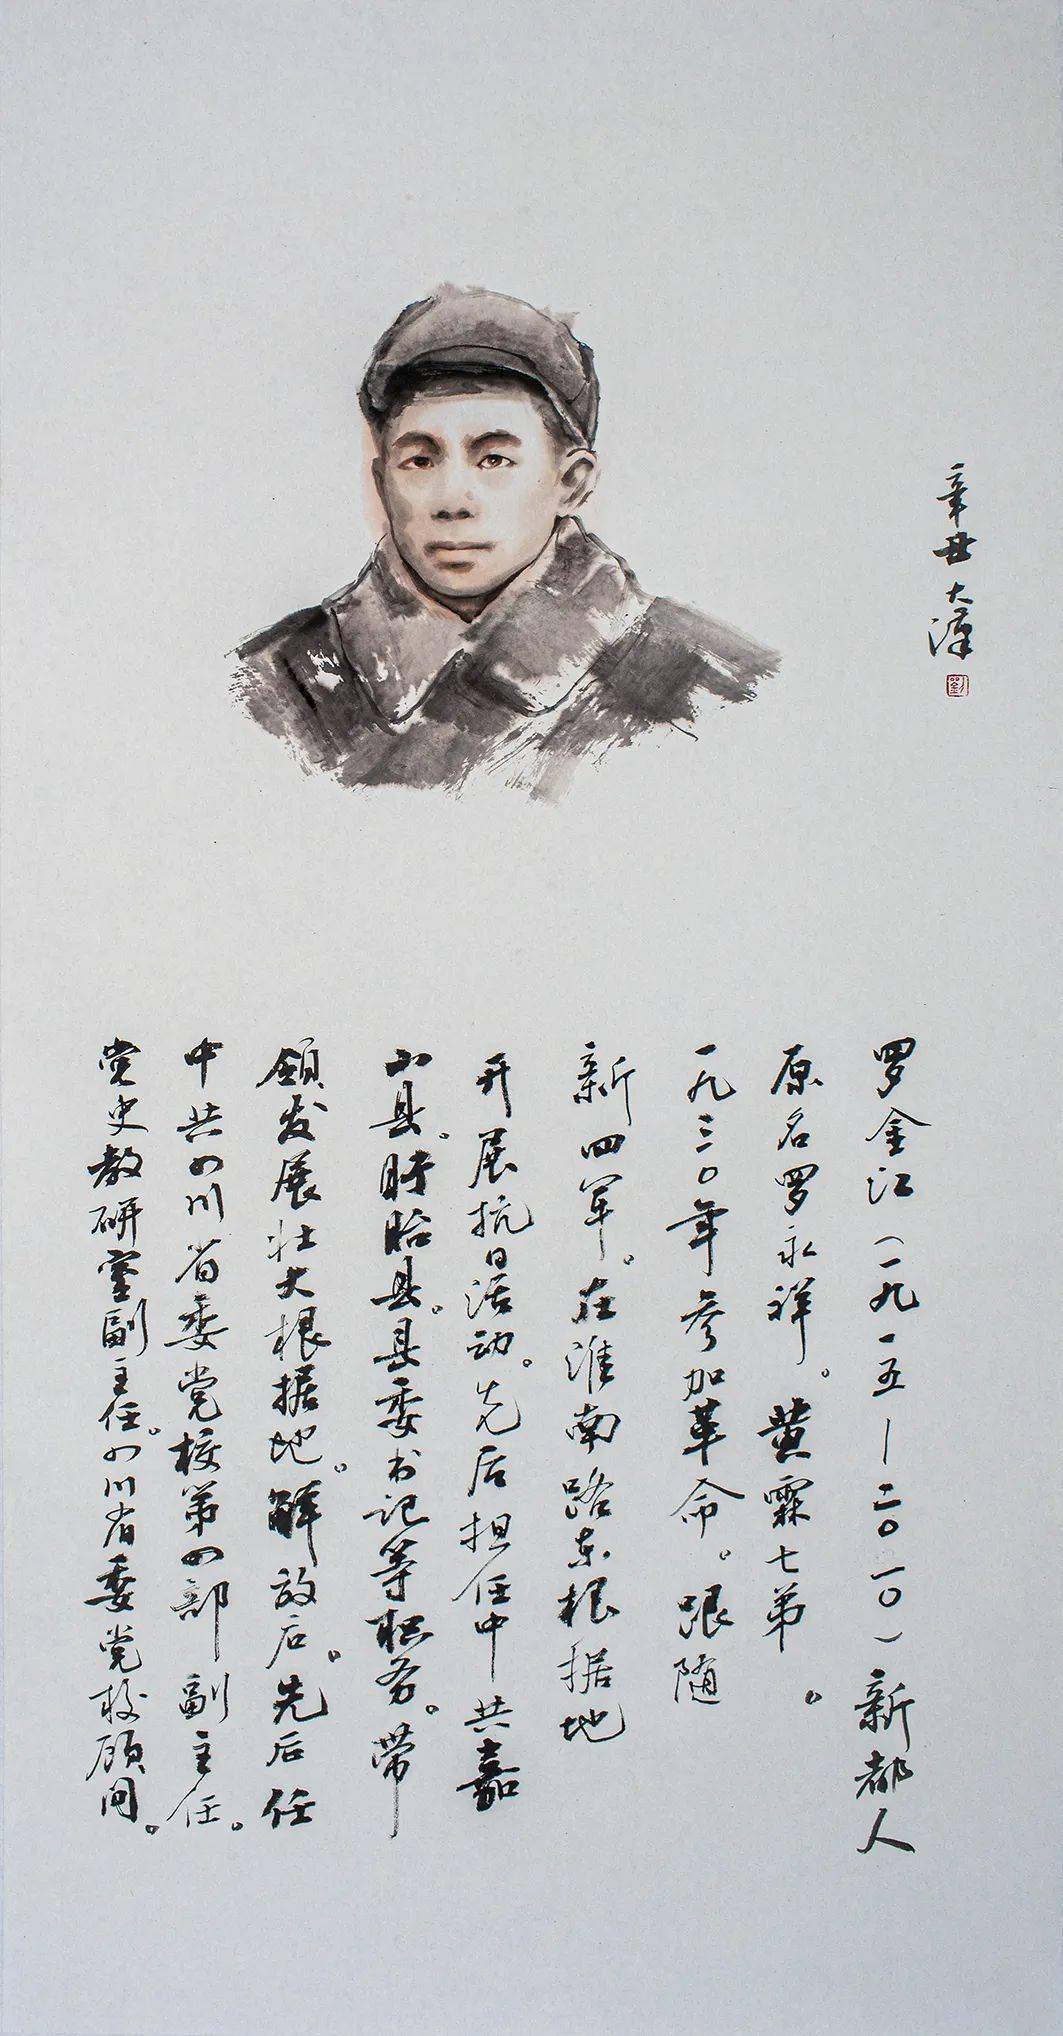 辛丑大漠
劉
罗金江（一九一五—二〇一〇）新都人
原名罗永祥。黄霖七弟。
一九三〇年参加革命。跟随
新四军。在淮南路东根据地
开展抗日活动。先后担任中共嘉
山县。盱眙县。县委书记等职务。带
领发展壮大根据地。解放后。先后任
中共四川省委党校第四部副主任。
党史教研室副主任。四川省委党校顾问。